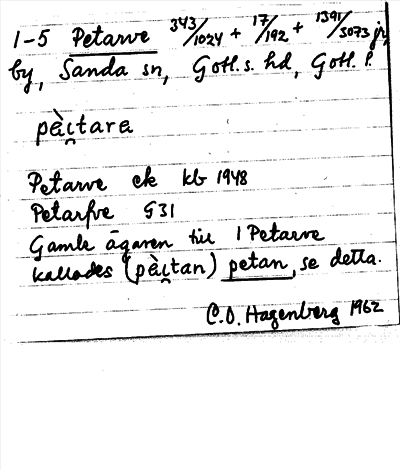 1-5 Petarve 343/1024 + 17/192 + 1391/3073 jr,
by, Sanda sn, Gotl. s. hd, Gotl. l.
pèi̯tara
Petarve ek kb 1948
Petarfve G31
Gamle ägaren till 1 Petarve
kallades (pèi̯tan) petan, se detta.
C.O. Hagenberg 1962